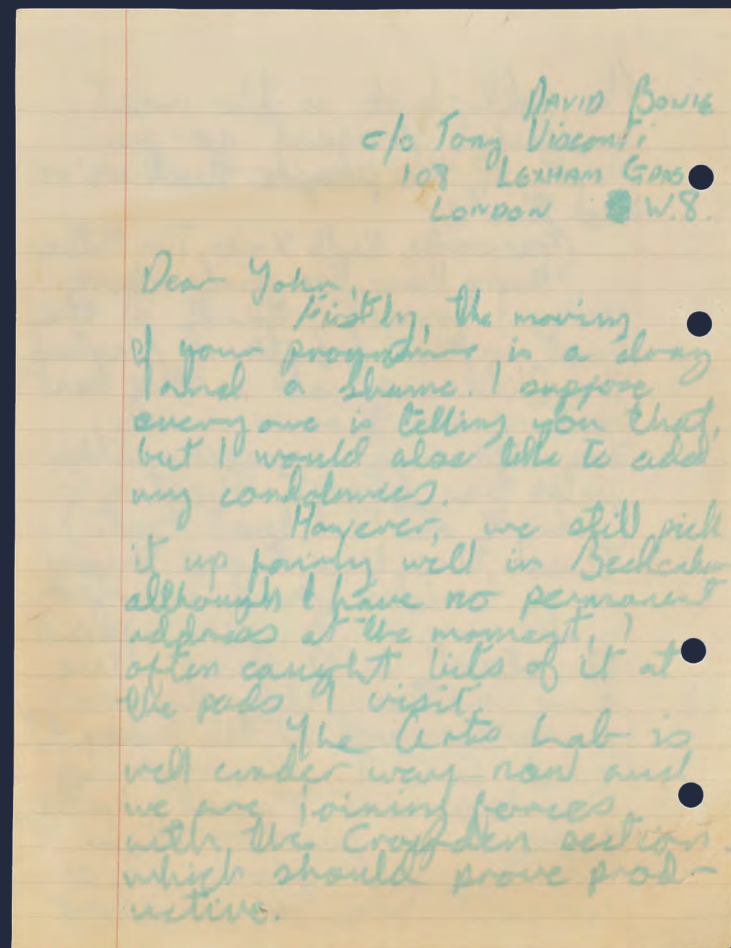 DAVID BOWIE
c/o Tony Visconti
108 LEXHAM GDNS
LONDON W.8.
Dear John,
Fistly, the moving
of your programme is a drag
and a shame. I suppose
everyone is telling you that,
but I would also like to add
my condolences.
However, we still pick
it up fairly well in Beckenham
although I have no permanent
address at the moment, I
often caught bits of it at
the pads I visit.
The Arts Lab is
well under way now and
we are joining forces
with the Croydon section.
which should prove prod-
uctive.